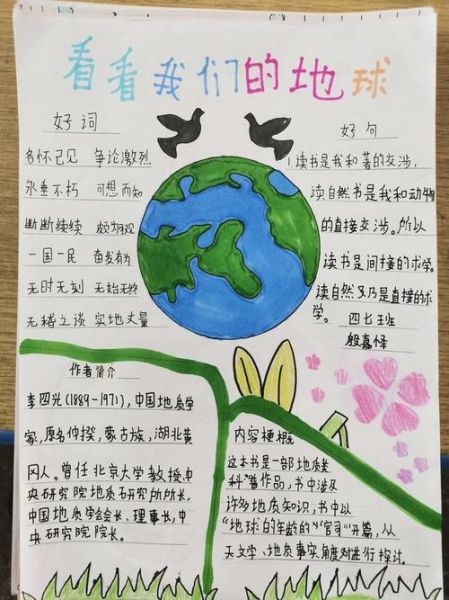 看看我们的地球
好词
各怀己见 争论激烈
永垂不朽 可想而知
断断续续 颇为可观
一国一民 奋发有为
无时无刻 无始无终
无稽之谈 实地丈量
好句
读书是我和著的交涉,
读自然书是我和动物
的直接交涉。所以
读书是间接的求学。
读自然又乃是直接的求
学。 四七班
殷嘉怿
作者简介
李四光(1889-1971),中国地质学
家,原名仲揆,蒙古族,湖北黄
冈人。曾任北京大学教授,中
央研究院地质研究所所长,
中国地质学会会长,理事长,中
央研究院院长。
内容梗概
这本书是一部地质类
科普作品,书中涉及
许多地质知识,书中以
“地球的年龄的“官司”开篇,从
天文学、地质事实角度对进行探讨。